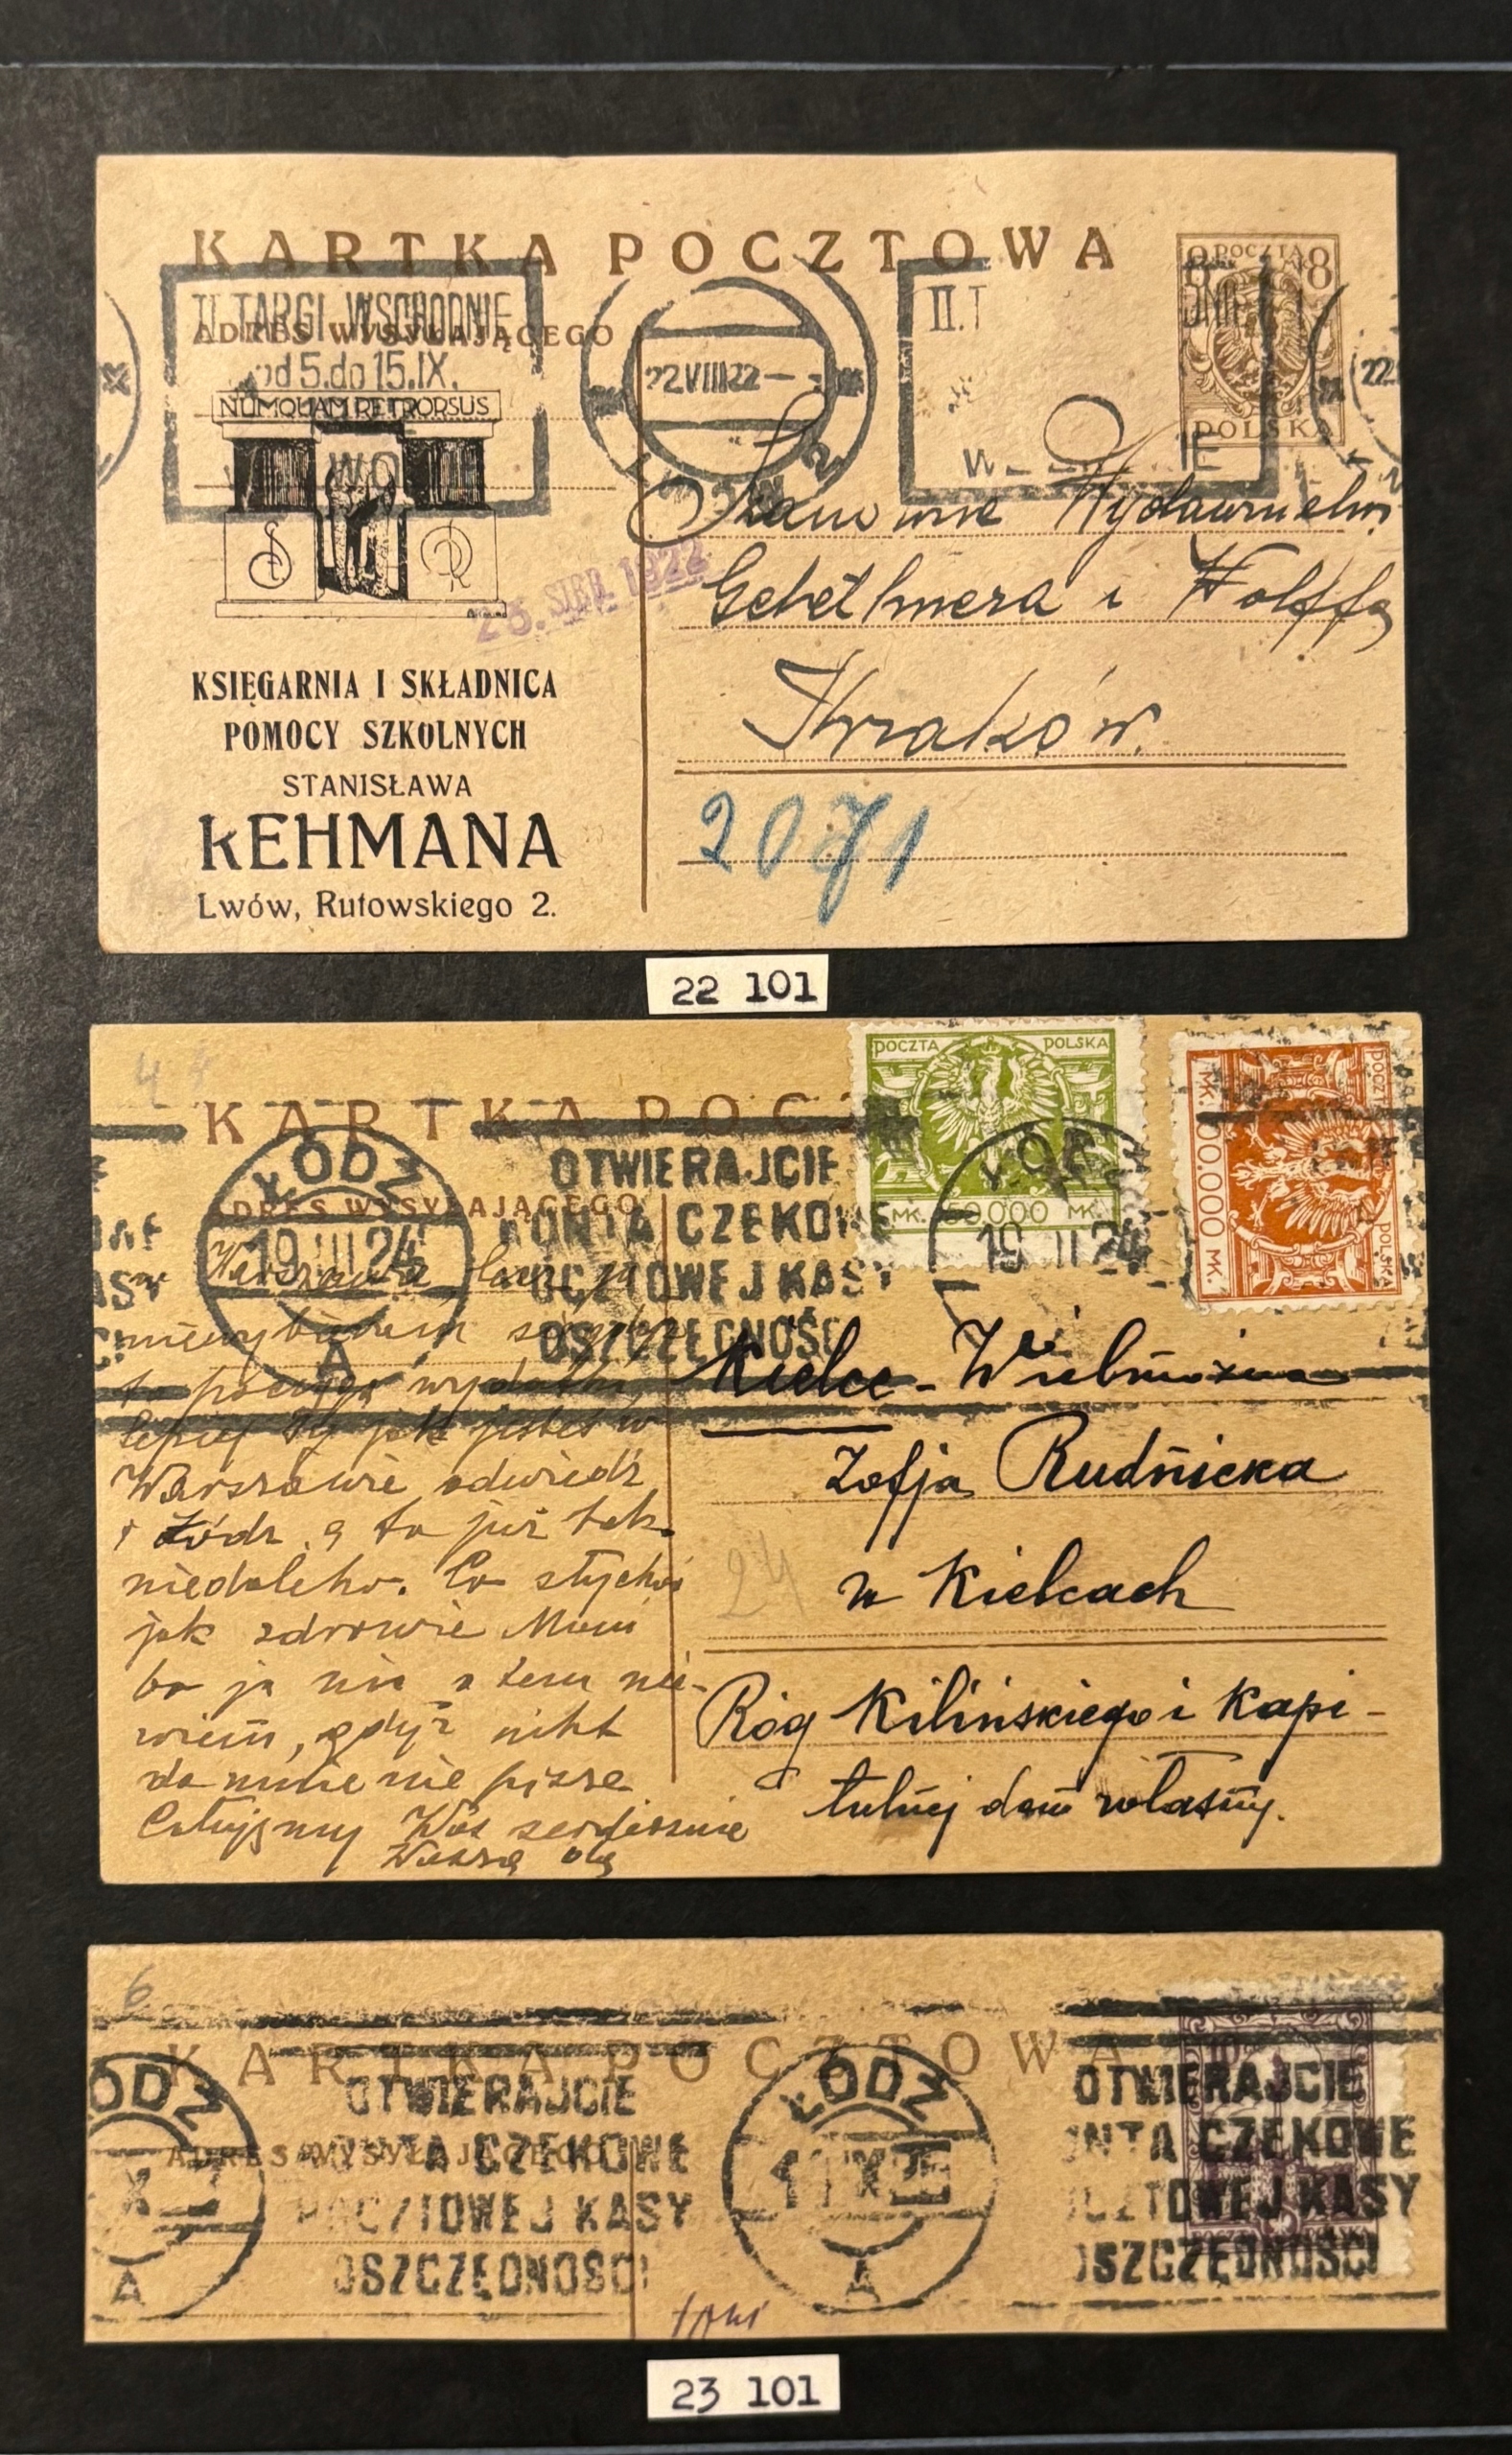 KARTKA POCZTOWA
POCZTA
8 8
POLSKA
II TARGI WSCHODNIE
od 5.do 15.IX.
ADRES WYSYŁAJĄCEGO
22 VIII 22
II.T
22
NUMQUAM RETRORSUS
Wydawnictwo
Gebethnera i Wolffa
25. SIER. 1922
Kraków.
KSIĘGARNIA I SKŁADNICA
POMOCY SZKOLNYCH
STANISŁAWA
KEHMANA
Lwów, Rutowskiego 2.
2071
22 101
POCZTA POLSKA
MK. 50.000 MK.
POCZTA POLSKA
MK. MK.
KARTKA POCZ
ŁÓDŹ
19 24
A
OTWIERAJCIE
KONTA CZEKOWE
POCZTOWEJ KASY
OSZCZĘDNOŚCI
ŁÓDŹ
19 II 24
ADRES WYSYŁAJĄCEGO
lepiej Ty jak jesteś w
Warszawie odwiedź
i Łódź, a to już tak
niedaleko. Co słychać
jak zdrowie Mami
bo ja nic o tem nie-
wiem, gdyż nikt
do mnie nie pisze
Całujemy Was serdecznie
Wasza Ola
Kielce - Wielmożna
Zofja Rudnicka
w Kielcach
24
Róg Kilińskiego i Kapi-
tulnej dom własny.
6
KARTKA POCZTOWA
ŁÓDŹ
A
OTWIERAJCIE
KONTA CZEKOWE
POCZTOWEJ KASY
OSZCZĘDNOŚCI
ADRES WYSYŁAJĄCEGO
ŁÓDŹ
A
OTWIERAJCIE
KONTA CZEKOWE
POCZTOWEJ KASY
OSZCZĘDNOŚCI
23 101